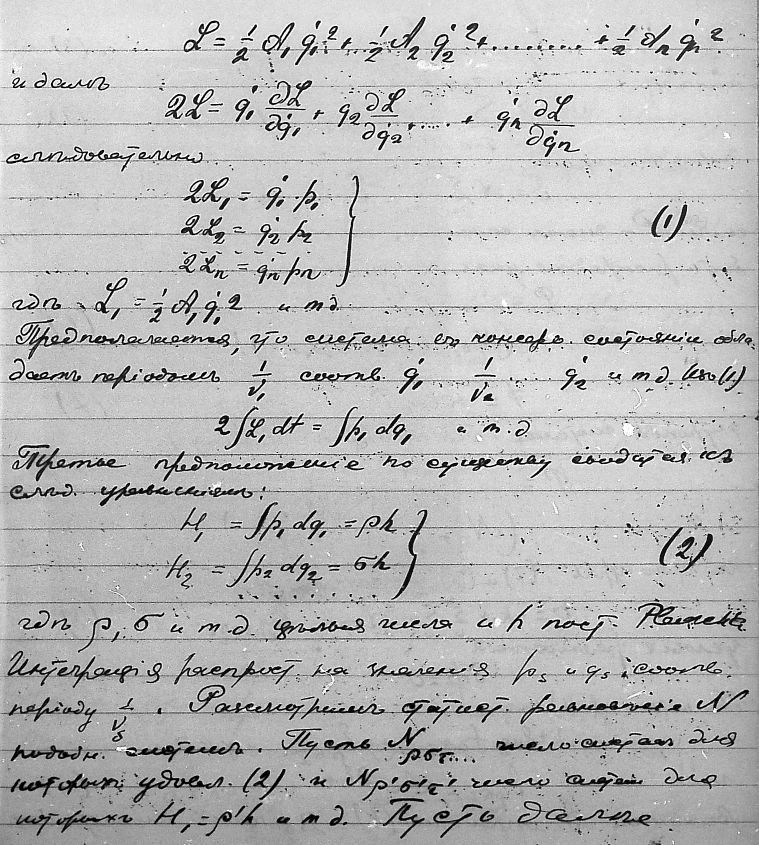 L = ½ A₁ q̇₁² + ½ A₂ q̇₂² + ......... + ½ Aₙ q̇ₙ²
и далѣ
2L = q̇₁ ∂L/∂q̇₁ + q̇₂ ∂L/∂q̇₂ + ..... + q̇ₙ ∂L/∂q̇ₙ
слѣдовательно
2L₁ = q̇₁ p₁
2L₂ = q̇₂ p₂ } (1)
2Lₙ = q̇ₙ pₙ
гдѣ L₁ = ½ A₁ q̇₁² и т.д.
Предполагается, что система въ консерв. состоянiи обла-
даетъ перiодомъ 1/ν₁ соотв. q̇₁ 1/ν₂ q̇₂ и т.д. Изъ (1)
2∫L₁dt = ∫p₁dq₁ и т.д
Третье предположенiе по существу сводится къ
слѣд. уравненiямъ:
H₁ = ∫p₁dq₁ = ρh
H₂ = ∫p₂dq₂ = σh } (2)
гдѣ ρ, σ и т.д. цѣлыя числа и h пост. Planck'a
Интеграцiя распрост. на значенiя pₛ и qₛ соотв.
перiоду 1/νₛ. Разсмотримъ статист. равновѣсiе N
подобн. системъ. Пусть N ρστ... число систем для
которыхъ удовл. (2) и Nρ'σ'τ' число систем для
которыхъ H₁ = ρ'h и т.д. Пусть далѣе